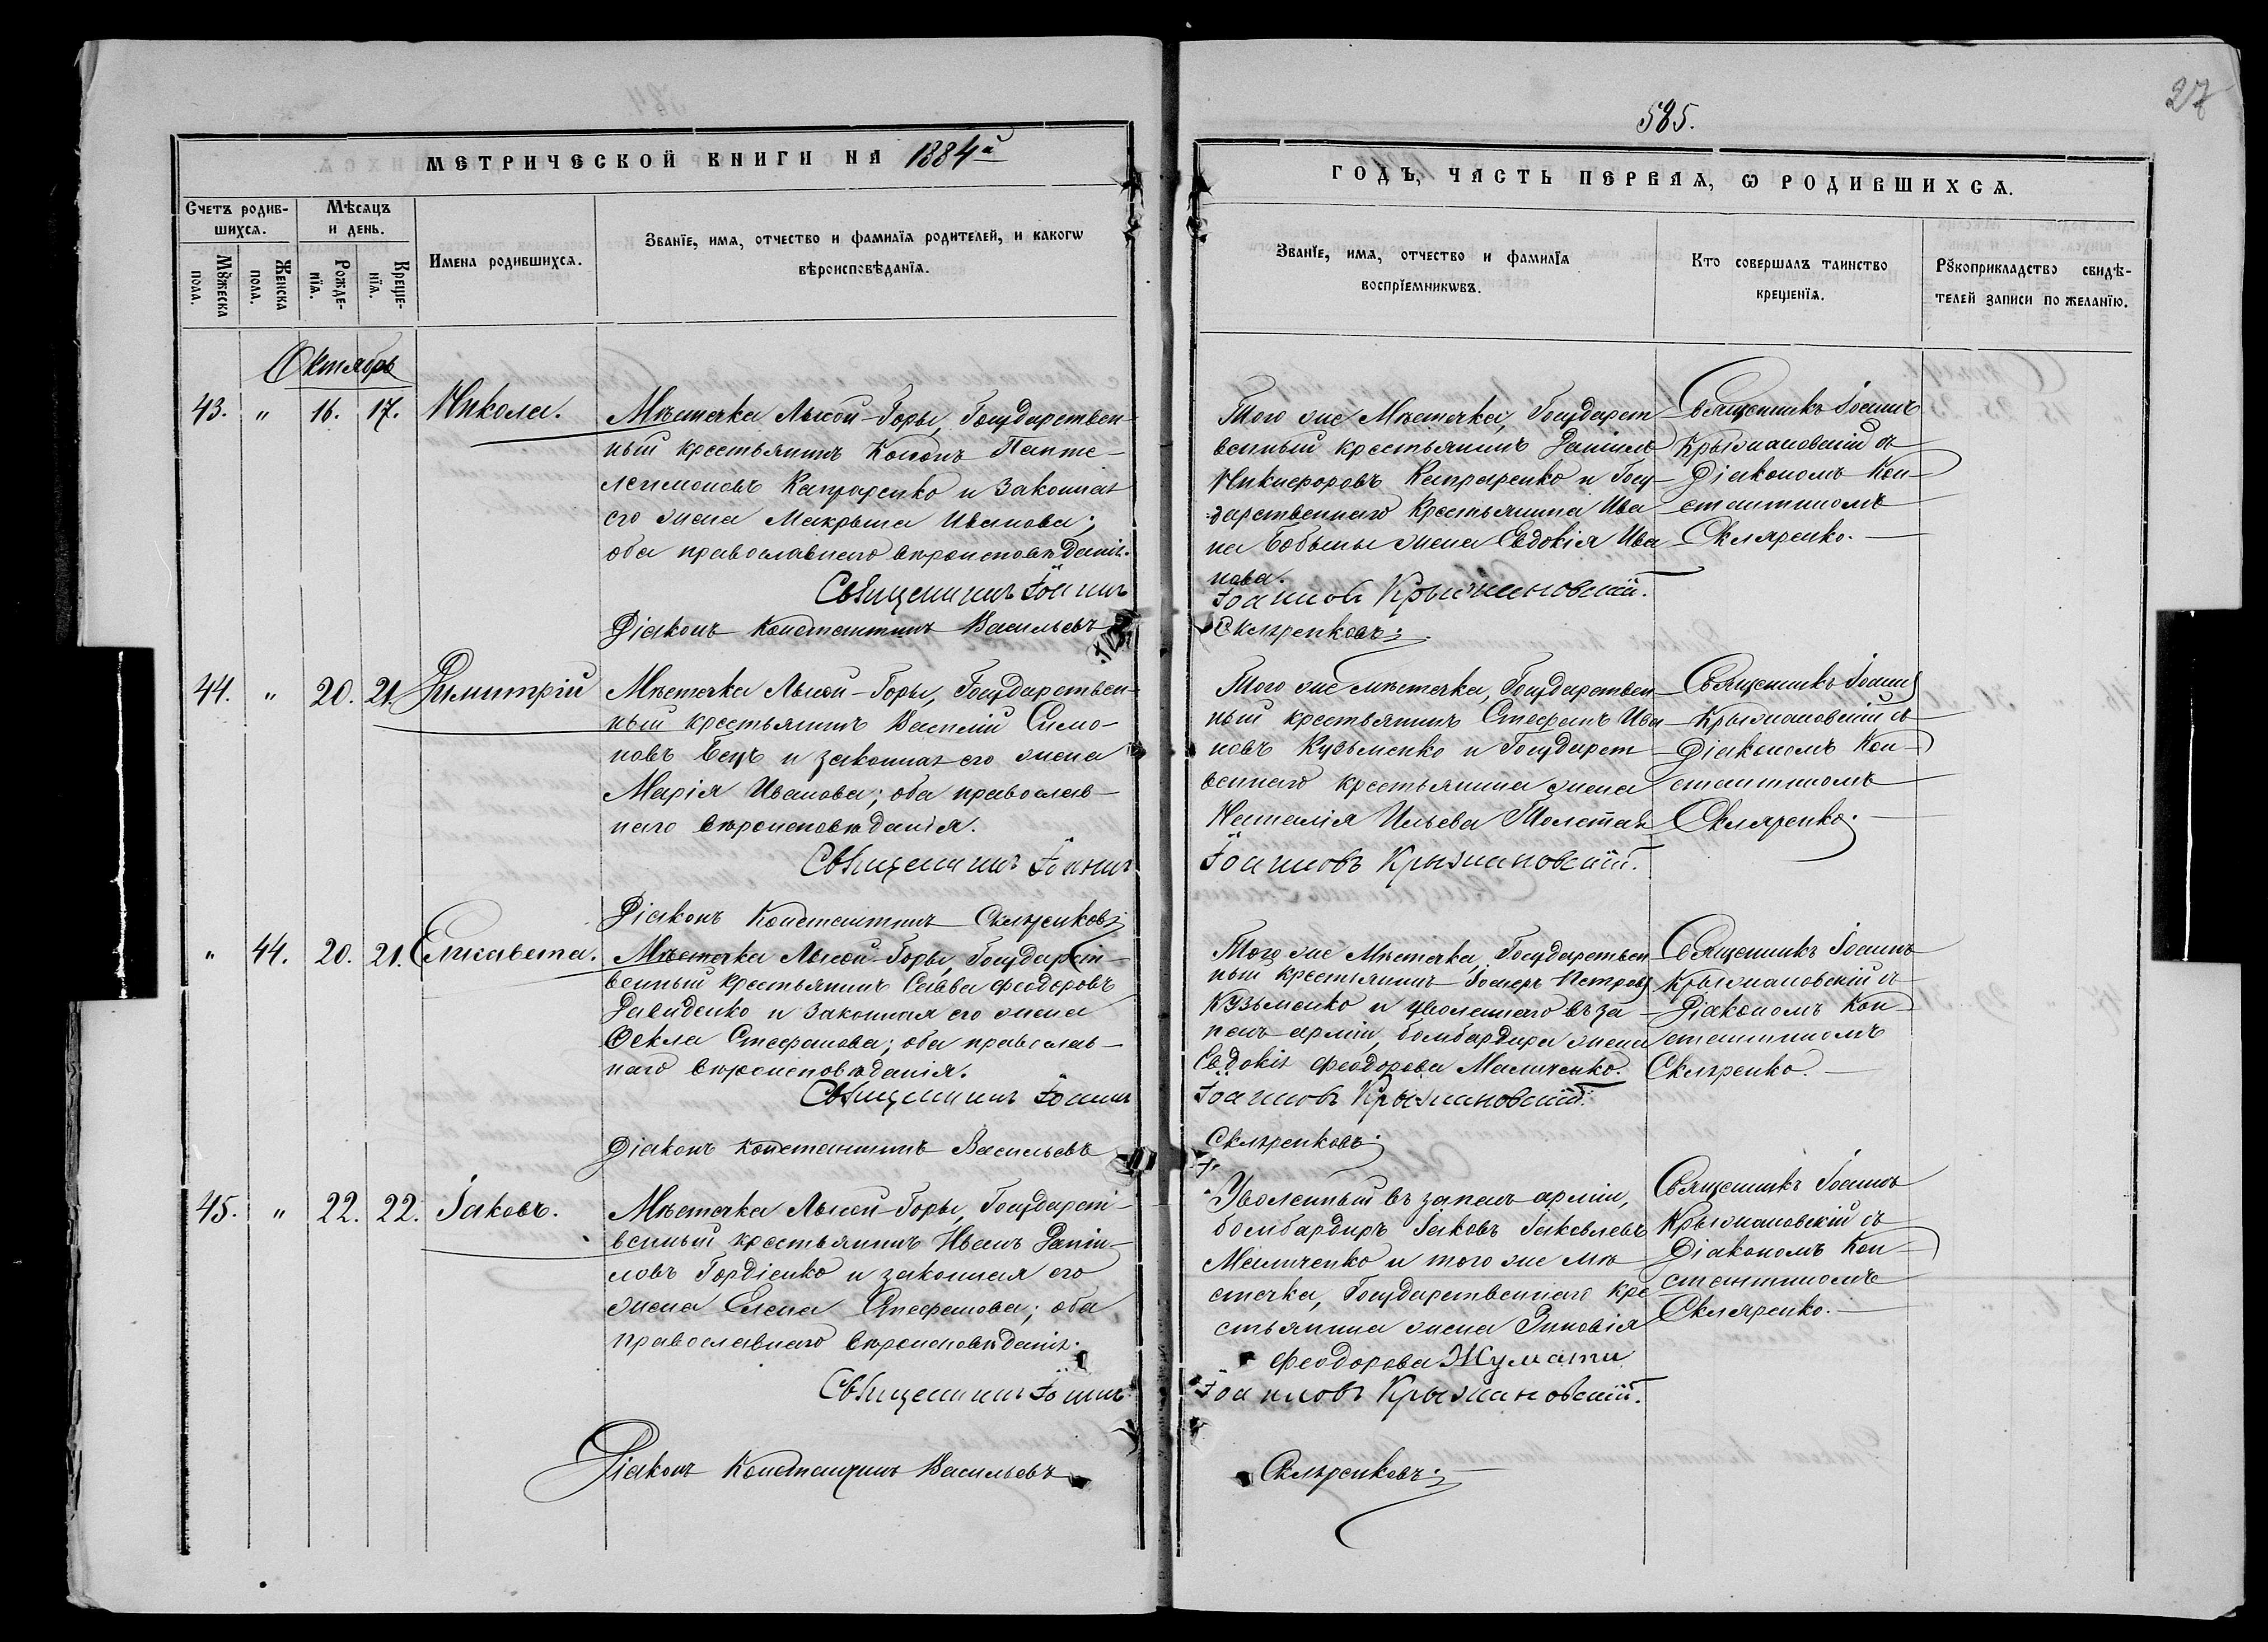 27
585.
МЕТРИЧЕСКОЙ КНИГИ НА 1884й
ГОДЪ, ЧАСТЬ ПЕРВАЯ, Ѡ РОДИВШИХСѦ.
Счетъ родив-
шихсѧ.
Мѣсѧцъ
и день.
Мꙋжеска
пола.
Женска
пола.
Рожде-
нїѧ.
Креще-
нїѧ.
Имена родившихсѧ.
Званїе, имѧ, отчество и фамилїѧ родителей, и какогѡ
вѣроисповѣданїѧ.
Званїе, имѧ, отчество и фамилїѧ
воспрїемникѡвъ.
Кто совершалъ таинство
крещенїѧ.
Рꙋкоприкладство свидѣ-
телей записи по желанїю.
Октябрь
43. " 16. 17. Никола.
Мѣстечка Лысой-Горы, Государствен-
ный крестьянинъ Кононъ Панте-
леимоновъ Капраренко и законная
его жена Макрына Иванова;
оба православнаго вѣроисповѣданія.
Священникъ Іоаннъ
Діаконъ Константинъ Васильевъ
Того же Мѣстечка, Государст
венный крестьянинъ Даніилъ
Никифоровъ Капраренко и Госу-
дарственнаго крестьянина Ива
на Бобыны жена Евдокія Ива
нова.
Іоанновъ Крыжановскій.
Скляренковъ;
Священникъ Іоаннъ
Крыжановскій съ
Діакономъ Кон-
стантиномъ
Скляренко.
44. " 20. 21. Димитрій
Мѣстечка Лысой-Горы, Государствен-
ный крестьянинъ Василій Симо-
новъ Бецъ и законная его жена
Марія Иванова; оба православ-
наго вѣроисповѣданія.
Священникъ Іоаннъ
Діаконъ Константинъ Скляренковъ
Того же мѣстечка, Государствен-
ный крестьянинъ Стефанъ Ива-
новъ Кузьменко и Государст-
веннаго крестьянина жена
Наталія Ильева Толстая
Іоанновъ Крыжановскій.
Священникъ Іоаннъ
Крыжановскій съ
Діакономъ Кон-
стантиномъ
Скляренко.
" 44. 20. 21. Елисавета.
Мѣстечка Лысой-Горы, Государст-
венный крестьянинъ Савва Феодоровъ
Давиденко и законная его жена
Ѳекла Стефанова; оба православ-
наго вѣроисповѣданія.
Священникъ Іоаннъ
Діаконъ Константинъ Васильевъ
Того же Мѣстечка, Государствен
ный крестьянинъ Петровъ
Кузьменко и уволеннаго въ за-
пасъ арміи, бомбардира жена
Евдокія Феодорова Маличенко.
Іоанновъ Крыжановскій.
Скляренковъ;
Священникъ Іоаннъ
Крыжановскій съ
Діакономъ Кон-
стантиномъ
Скляренко.
45. " 22. 22. Іаковъ.
Мѣстечка Лысой-Горы, Государст-
венный крестьянинъ Иванъ Даніи-
ловъ Гордіенко и законная его
жена Елена Стефанова; оба
православнаго вѣроисповѣданія.
Священникъ Іоаннъ
Діаконъ Константинъ Васильевъ
Уволенный въ запасъ арміи,
бомбардиръ Іаковъ Іаковлевъ
Маличенко и того же мѣ
стечка, Государственнаго кре
стьянина жена Зиновія
Феодорова Жумати
Іоанновъ Крыжановскій.
Скляренковъ;
Священникъ Іоаннъ
Крыжановскій съ
Діакономъ Кон-
стантиномъ
Скляренко.